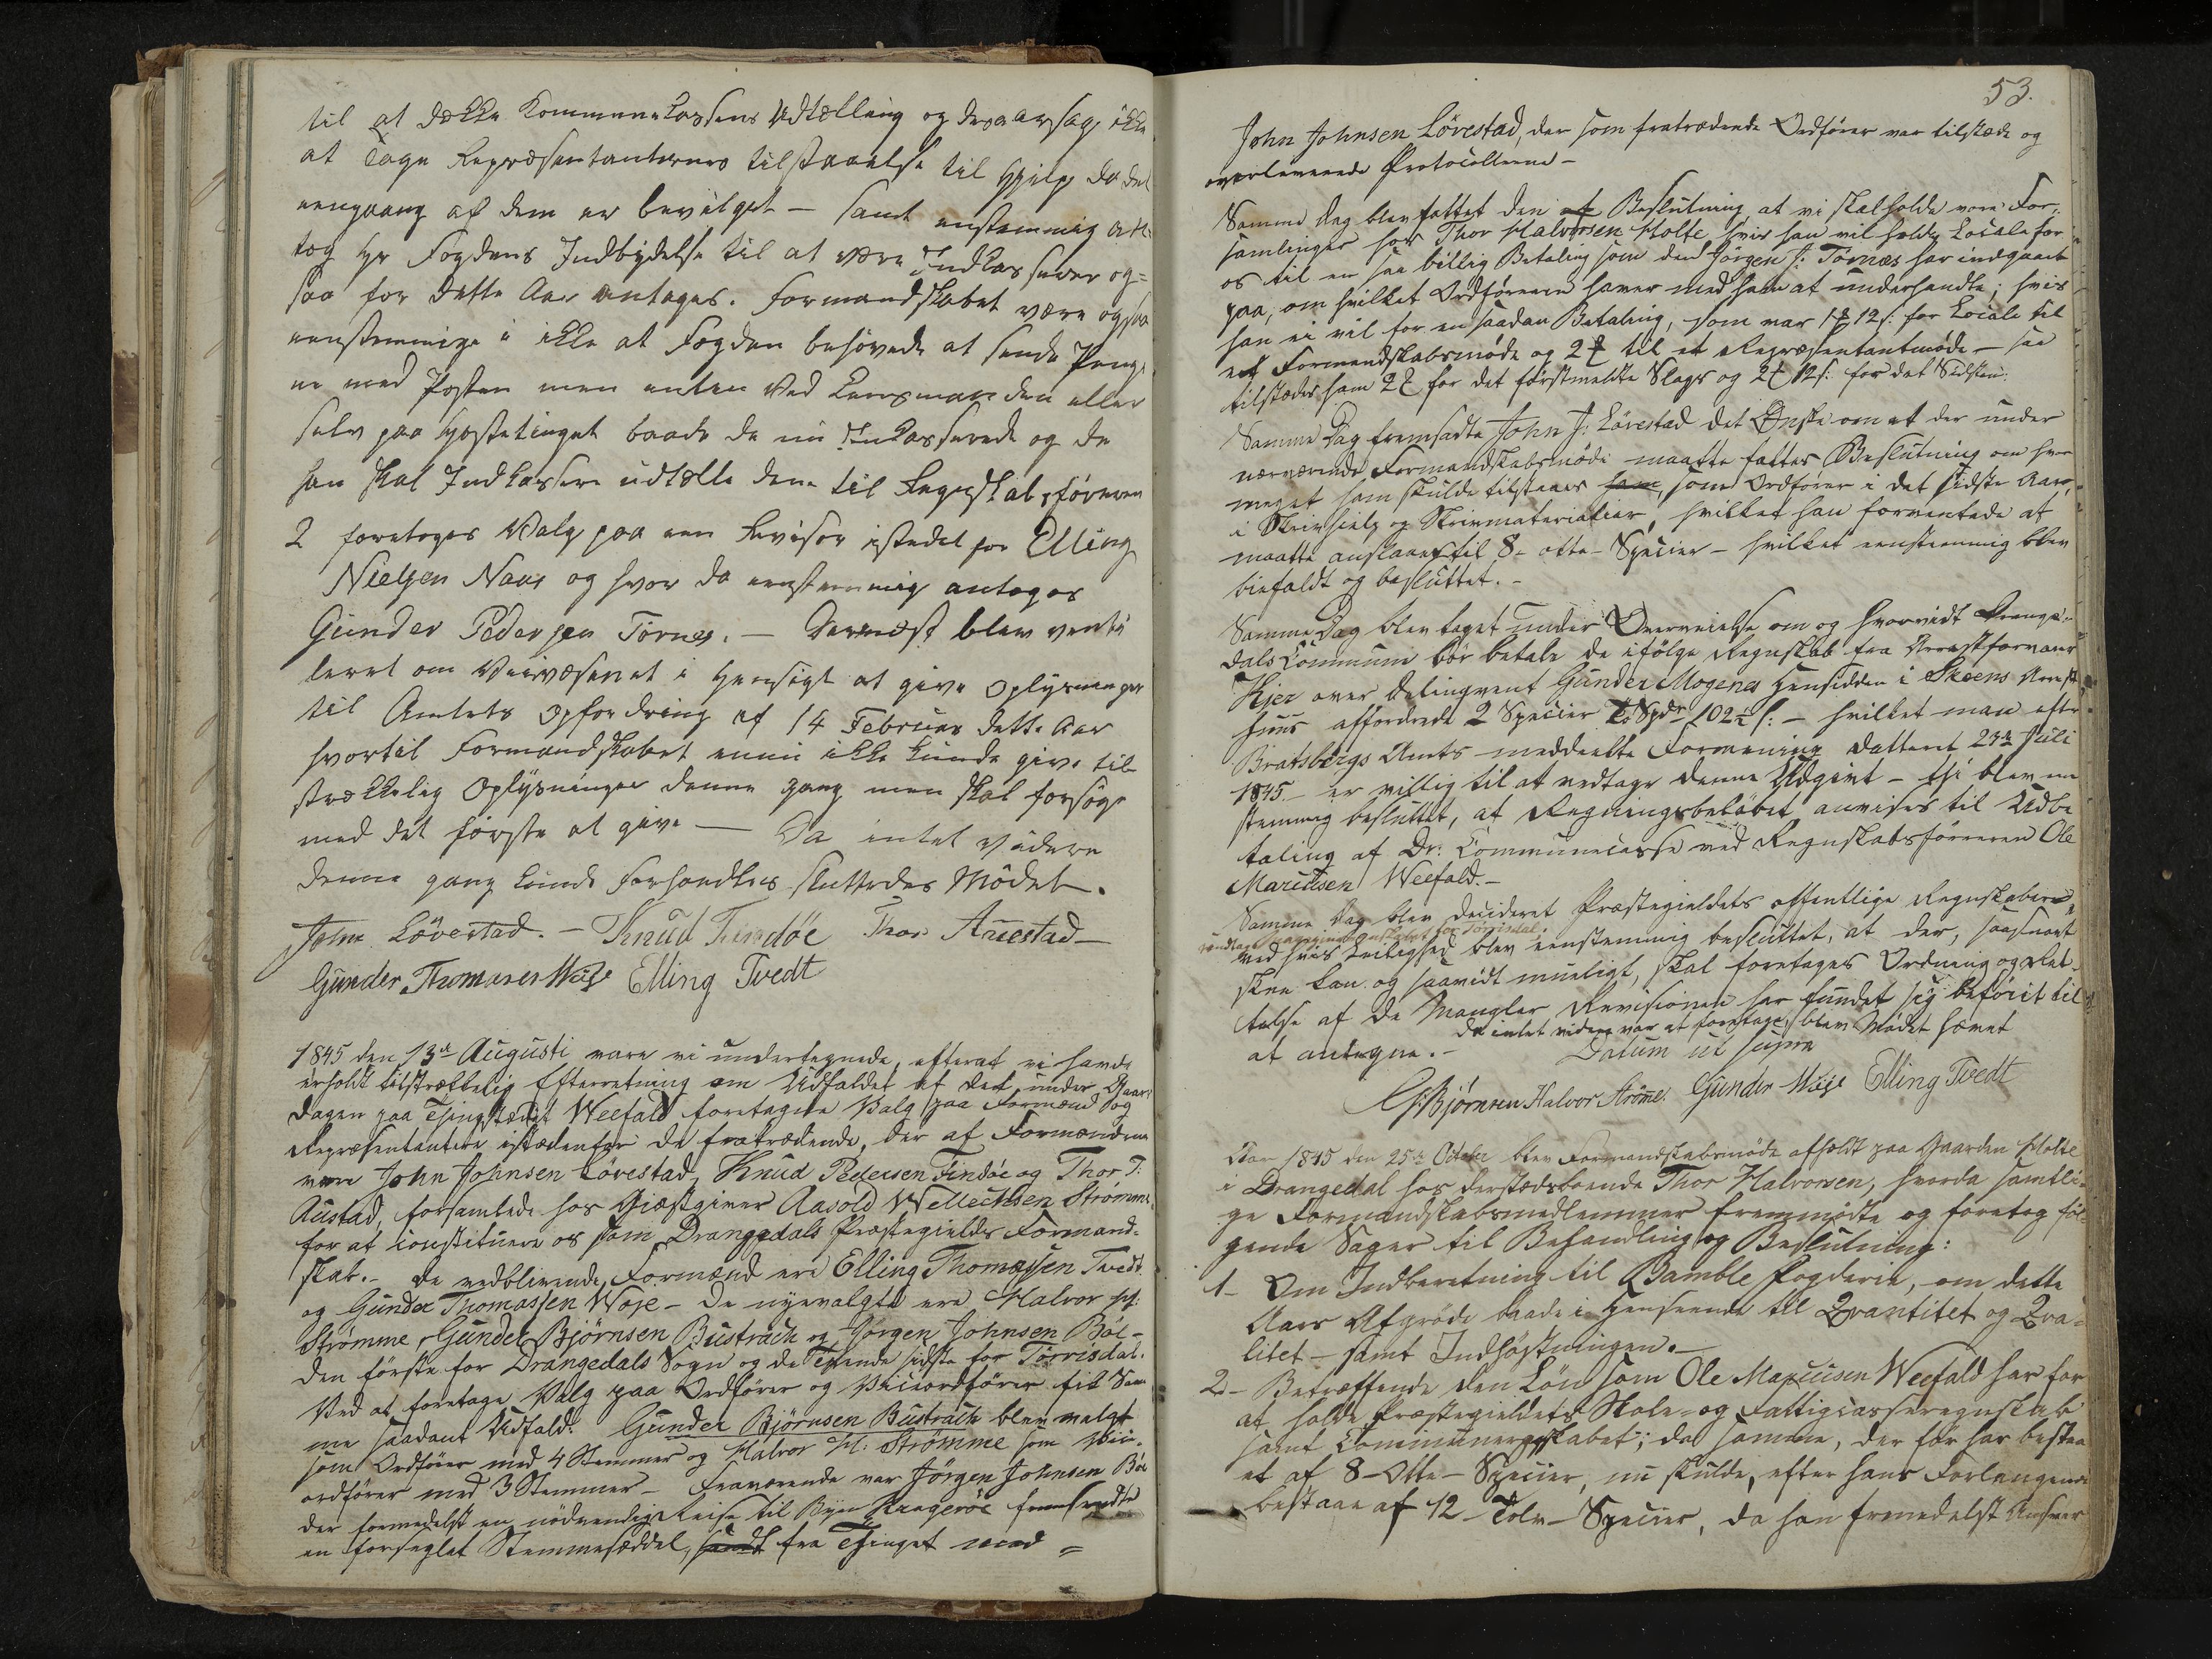 til at dække Kommunekassens Udtælling og desaarsag ikke
at tage Repræsentanternes tilstaaelse til Hjelp da det
eengaang af dem er bevilget – samt enstemmig antog
tog Hr Fogdens Indbydelse til at være Indkasserer og=
saa for dette Aar antages. Formandskabet vare ogsaa
eenstemmige i ikke at Fogden behövede at sende Penge
ne med Posten men enten ved Lensmanden eller
selv paa Høstetinget baade de nu Inkasserede og de
han skal Indkassere udtælle dem til Regnskabsföreren
2 foretoges Valg paa een Revisor istedet for Elling
Nielsen Naas og hvor da eenstemmig antoges
Gunder Pedersen Tornes. – Dernæst blev venti
leret om Veivæsenet i Hensigt at give Oplysninger
til Amtets Opfordring af 14 Februar dette Aar
hvortil Formandskabet ennu ikke kunde give til
strækkelig Oplysninger denne gang men skal forsöge
med det förste at give — Da intet videre
denne gang kunde forhandles sluttedes Mödet.
John Lövestad. – Knud Findöe Thor Auestad –
Gunder Thomasen Woje Elling Tvedt
1845 den 13de Augusti vare vi undertegnede, efterat vi havde
erholdt tilstrækkelig Efterretning om Udfaldet af det under Gaars
Dagen paa Thingstædet Weefald foretagne Valg paa Formænd og
Repræsentantere istædenfor de fratrædende, der af Formændene
vare John Johnsen Lövestad, Knud Pedersen Findöe og Thor T:
Austad, forsamlede hos Giæstgiver Aasold Wellechsen Strömme,
for at constituere os som Drangedals Præstegields Formand-
skab. – De vedblivende Formænd ere Elling Thomassen Tvedt
og Gunder Thomassen Woje – de nyevalgte ere Halvor H:
Strömme, Gunder Björnsen Bustrach og Jörgen Johnsen Böe –
den förste for Drangedals Sogn og de tvende sidste for Törrisdal.
Ved at foretage Valg paa Ordförer og Viceordförer fik Sam
me saadant Udfald: Gunder Björnsen Bustrach blev valgt
som Ordförer med 4 Stemmer og Halvor H: Strömme som Vice-
ordförer med 3 Stemmer – Fraværende var Jörgen Johnsen Böe
der formedelst en nödvendig Reise til Byen Krageröe fremsendte
en forseglet Stemmesæddel, sendt fra Thinget med =
53.
John Johnsen Lövestad, der som fratrædende Ordförer var tilstæde og
overleverede Protocollerne –
Samme Dag blev fattet den af Beslutning, at vi skal holde vore For-
samlinger hos Thor Halvorsen Holte hvis han vil holde Locale for
os til en saa billig Betaling som den Jörgen J: Tornæs har indgaaet
paa, om hvilket Ordföreren haver med ham at underhandle; hvis
han ei vil for en saadan Betaling, som var 1 12 s: for Locale til
et Formandskabsmöde og 2 til et Repræsentantmöde – saa
tilstædes ham 2 for det förstmeldte Slags og 2 12 s: for det Sidste.
Samme Dag fremsadte John J: Lövestad det Önske om at der under
nærværende Formandskabsmöde maatte fattes Beslutning om hvor
meget ham skulde tilstaaes ham, som Ordförer i det sidste Aar,
i Skrivhielp og Skrivmaterialier, hvilket han formente at
maatte anslaaes til 8 – otte – Specier – hvilket eenstemmig blev
bifaldt og besluttet. –
Samme Dag blev taget under Overveielse om og hvorvidt Drange-
dals Commune bör betale de ifölge Regnskab fra Arrestforvarer
Kjer over Delinqvent Gunder Mogenes Hensidden i Skeens Arrest
huus affordrede 2 Specier To Spdr 102½ s: – hvilket man efter
Bratsbergs Amts meddeelte Formening datteret 23de Juli
1845 – er villig til at vedtage denne Udgivt – thi blev een
stemmig besluttet, at Regningsbelöbet anvises til Udbe
taling af Dr: Communecasse ved Regnskabsföreren Ole
Marcusen Weefald. –
Samme Dag blev decideret Præstegieldets offentlige Regnskaber
undtagen for Törrisdal
ved hvis Leilighed blev eenstemmig besluttet, at der, saasnart
skee kan og saavidt mueligt, skal foretages Ordning og Ret-
telse af de Mangler Revisionen har fundet sig beföiet til
at antegne. – da intet videre var at foretage, blev Mödet hævet
Datum ut supra
G: Björnsen Halvor Ströme. Gunder Woje Elling Tvedt
Aar 1845 den 25de October blev Formandskabsmöde afholdt paa Gaarden Holte
i Drangedal hos derstædsboende Thor Halvorsen, hvorda samtli-
ge Formandskabsmedlemmer fremmödte og foretog föl-
gende Sager til Behandling og Beslutning:
1 – Om Indberetning til Bamble Fogderie, om dette
Aars Afgröde baade i Henseende til Qvantitet og Qva-
litet – samt Indhöstningen. –
2 – Betræffende den Lön som Ole Marcusen Weefald har for
at holde Præstegieldets Skole- og Fattigcasseregnskab
samt Communeregnskabet; da samme, der för har bestaa
et af 8 – Otte – Specier, nu skulde, efter hans Forlangende
bestaae af 12 – Tolv – Specier, da han formedelst Ansvar